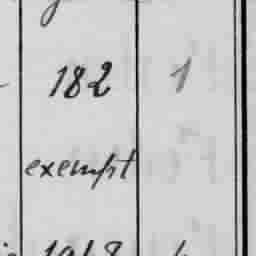 182 1
exempt